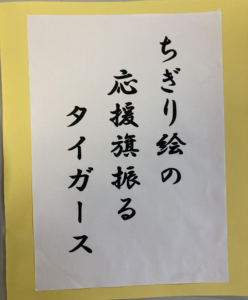 ちぎり絵の
応援旗振る
タイガース